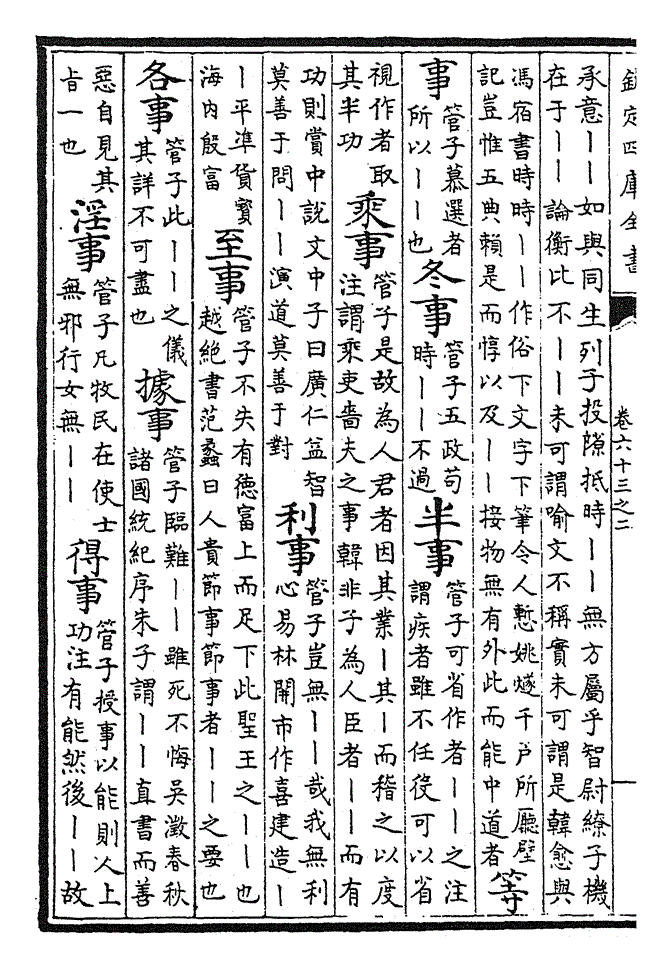 欽定四庫全書
卷六十三之二
承意丨丨如與同生列子投隙抵時丨丨無方屬乎智尉繚子機
在于丨丨論衡比不丨丨未可謂喻文不稱實未可謂是韓愈與
馮宿書時時丨丨作俗下文字下筆令人慙姚燧千戶所廳壁
記豈惟五典賴是而惇以及丨丨接物無有外此而能中道者
等
事
管子慕選者
所以丨丨也
冬事
管子五政苟
時丨丨不過
半事
管子可省作者丨丨之注
謂疾者雖不任役可以省
視作者取
其半功
乘事
管子是故為人君者因其業丨其丨而稽之以度
注謂乘吏嗇夫之事韓非子為人臣者丨丨而有
功則賞中說文中子曰廣仁益智
莫善于問丨丨演道莫善于對
利事
管子豈無丨丨哉我無利
心易林開市作喜建造丨
丨平準貨寳
海内殷富
至事
管子不失有德富上而足下此聖王之丨丨也
越絕書范蠡曰人貴節事節事者丨丨之要也
各事
管子此丨丨之儀
其詳不可盡也
據事
管子臨難丨丨雖死不悔吳澂春秋
諸國統紀序朱子謂丨丨直書而善
惡自見其
㫖一也
淫事
管子凡牧民在使士
無邪行女無丨丨
得事
管子授事以能則人上
功注有能然後丨丨故